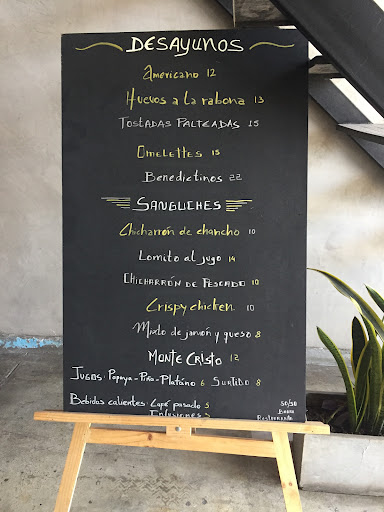 DESAYUNOS
Americano 12
Huevos a la rabona 13
Tostadas Palteadas 15
Omelettes 15
Benedictinos 22
SANGUCHES
Chicharrón de chancho 10
Lomito al jugo 14
Chicharrón de Pescado 10
Crispy chicken 10
Mixto de jamón y queso 8
Monte Cristo 12
Jugos: Papaya - Piña - Platáno 6 Surtido 8
Bebidas calientes: Café pasado 5
Infusiones 5
50/50
Restaurante